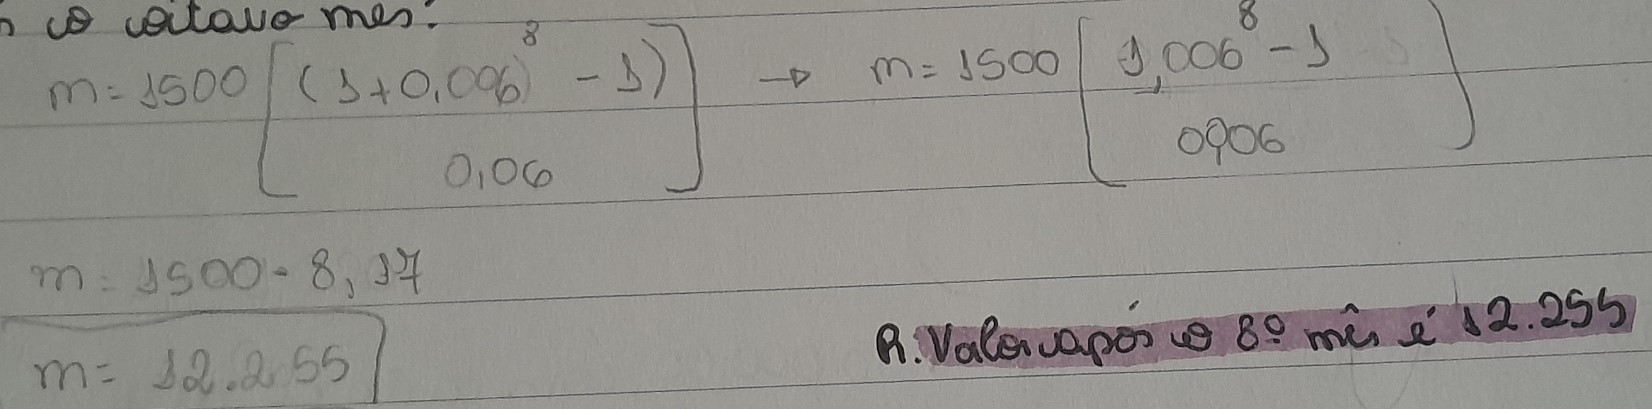 o oitavo mes:
m = 1500 [ (1+0,006)⁸ - 1) → m = 1500 [ 1,006⁸ - 1
0,06 ] 0,006 ]
m = 1500 - 8,17
m = 12.255
R. Valor após o 8º mês é 12.255